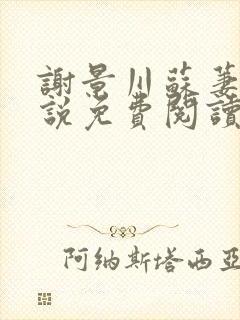 謝景川蘇萋
說免費閱讀
阿納斯塔西亞